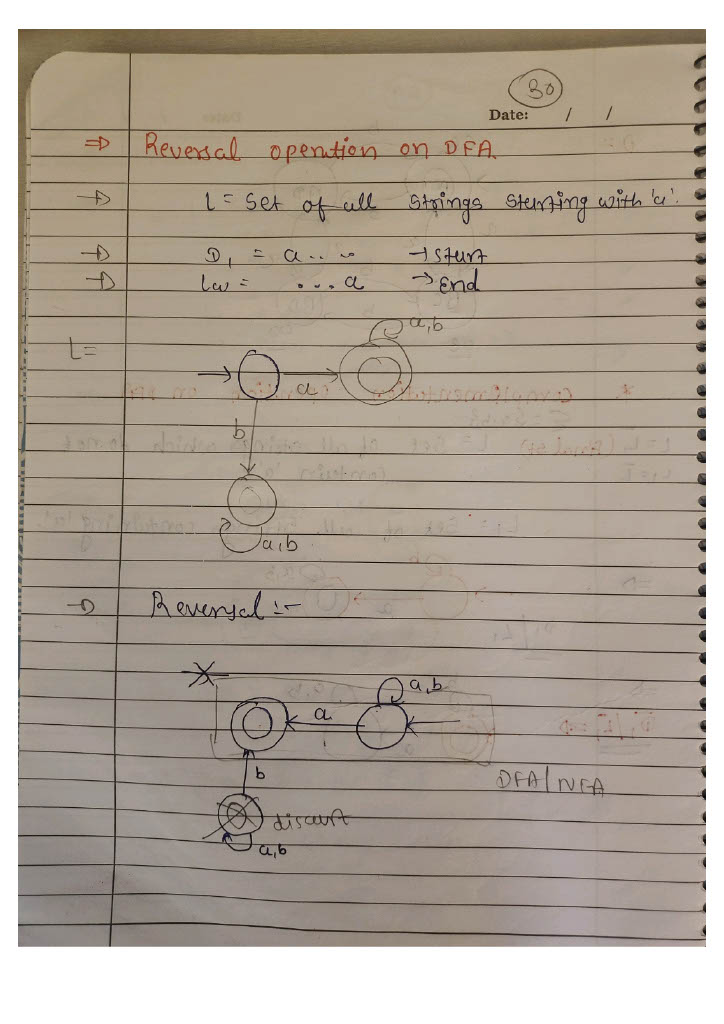 30
Date: / /
⇒ Reversal operation on DFA
⇒ L = Set of all strings starting with 'a'.
⇒ D₁ = a.. .. → start
⇒ Lw = ... a → End
a,b
L =
a
b
a,b
⇒ Reversal :-
a,b
a
b
DFA/NFA
discart
a,b